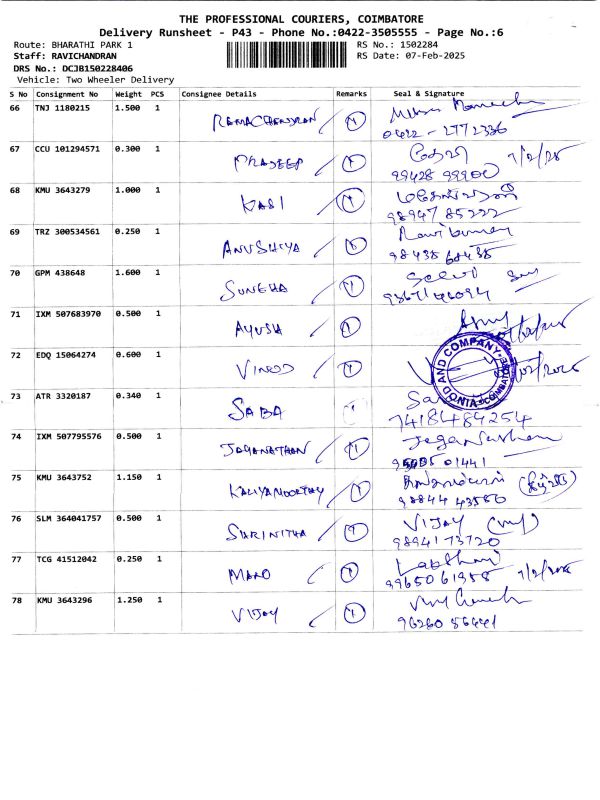 THE PROFESSIONAL COURIERS, COIMBATORE
Delivery Runsheet - P43 - Phone No.:0422-3505555 - Page No.:6
Route: BHARATHI PARK 1 RS No.: 1502284
Staff: RAVICHANDRAN RS Date: 07-Feb-2025
DRS No.: DCJB150228406
Vehicle: Two Wheeler Delivery
S No Consignment No Weight PCS Consignee Details Remarks Seal & Signature
66 TNJ 1180215 1.500 1 RAMACHANDRAN 1
0422-2772336
67 CCU 101294571 0.300 1 PRADEEP 1 தேவி 7/2/25
99428 99900
68 KMU 3643279 1.000 1 KASI 1
98947 85222
69 TRZ 300534561 0.250 1 ANUSHIYA Ravikumar
98438 68438
70 GPM 438648 1.600 1 SUNEHA 1 Selvi
71 IXM 507683970 0.500 1 AYUSH 1
72 EDQ 15064274 0.600 1 VINOD 1
AND COMPANY COIMBATORE
73 ATR 3320187 0.340 1 SABA 1
7418489254
74 IXM 507795576 0.500 1 JAGANATHAN 1
75 KMU 3643752 1.150 1 KALIYAMOORTHY 1
98844 43580
76 SLM 364041757 0.500 1 SARINITHA 1 VIJAY
9894173720
77 TCG 41512042 0.250 1 MANO 1 Lakshmi
9965061958 7/2/2025
78 KMU 3643296 1.250 1 VIJAY 1
96260 56441